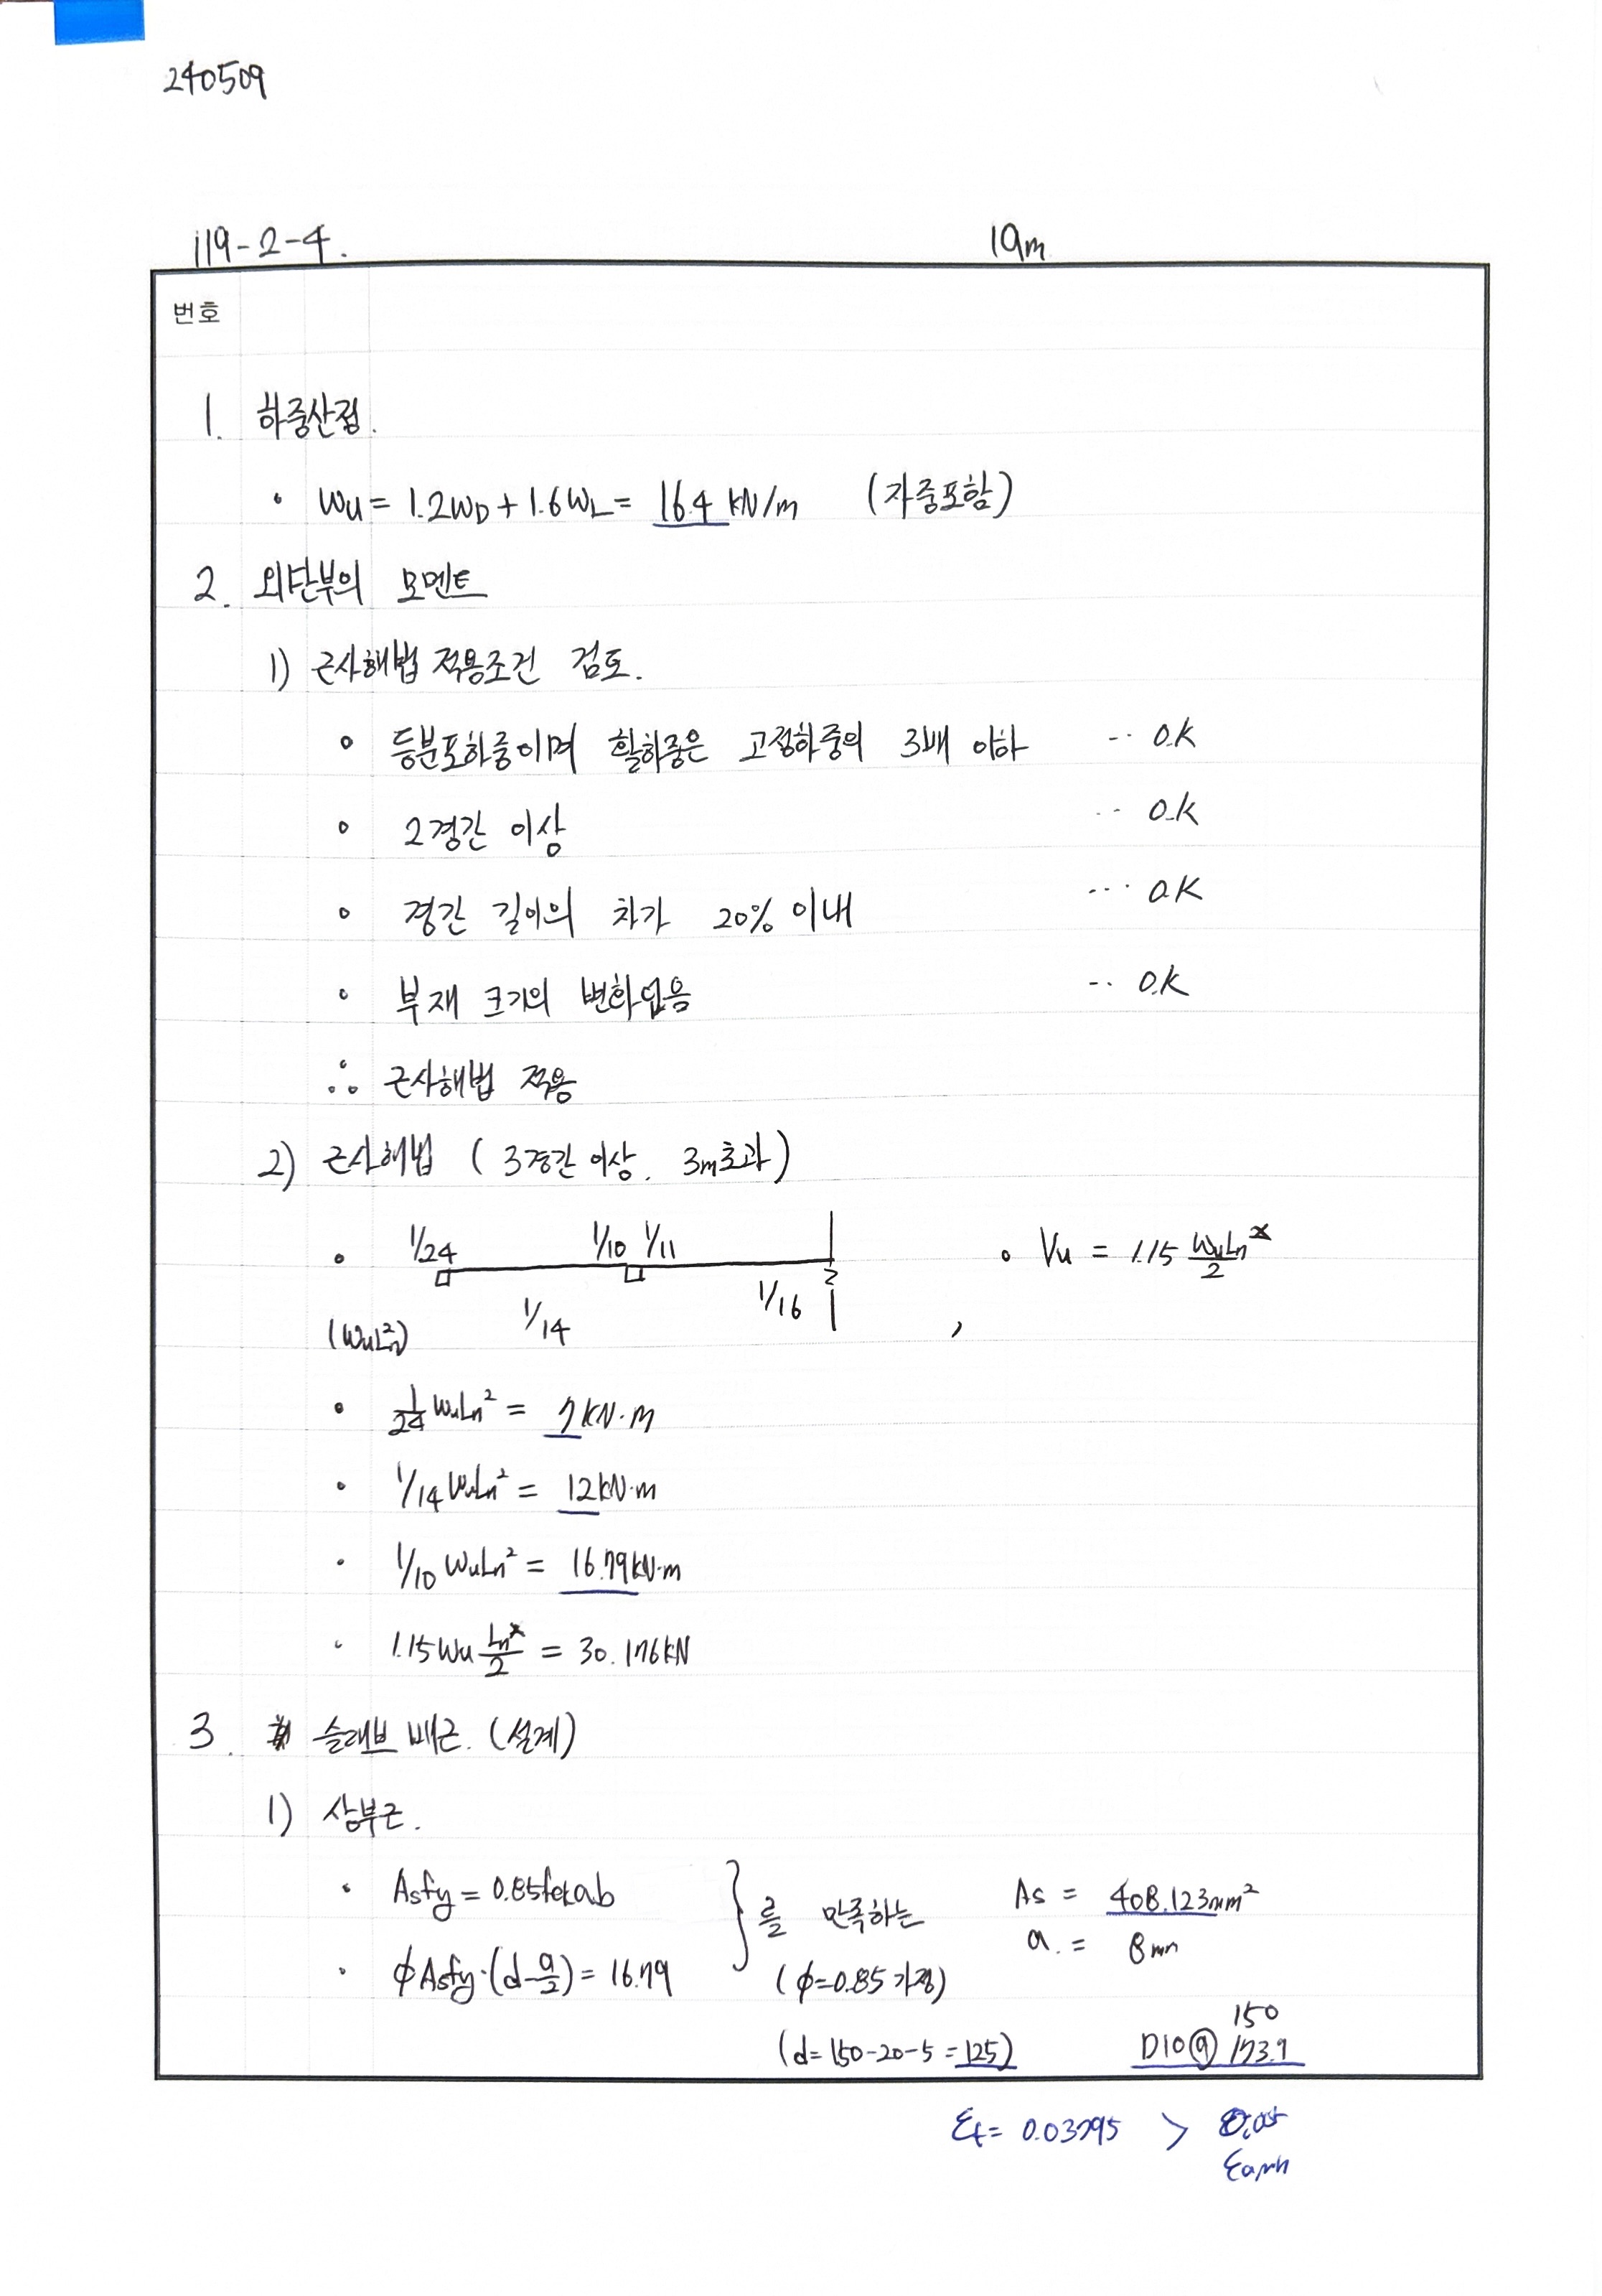 240509
119-2-4.
19m
번호
1. 하중산정.
• Wu = 1.2WD + 1.6WL = 16.4 kN/m (자중포함)
2. 외단부의 모멘트
1) 근사해법 적용조건 검토.
• 등분포하중이며 활하중은 고정하중의 3배 이하 -- O.K
• 2경간 이상 -- O.K
• 경간 길이의 차가 20% 이내 --- O.K
• 부재 크기의 변화없음 -- O.K
∴ 근사해법 적용
2) 근사해법 (3경간 이상. 3m초과)
• 1/24 1/10 1/11
1/14 1/16
(WuLn²) ,
• Vu = 1.15 WuLn/2
• 1/24 WuLn² = 7kN·m
• 1/14 WuLn² = 12kN·m
• 1/10 WuLn² = 16.79kN·m
• 1.15Wu Ln/2 = 30.176kN
3. 슬래브 배근. (설계)
1) 상부근.
• Asfy = 0.85fckab
• φAsfy·(d-a/2) = 16.79
} 를 만족하는
(φ=0.85 가정)
(d=150-20-5=125)
As = 408.123mm²
a. = 8mm
150
D10@ 173.9
εt = 0.03795 >